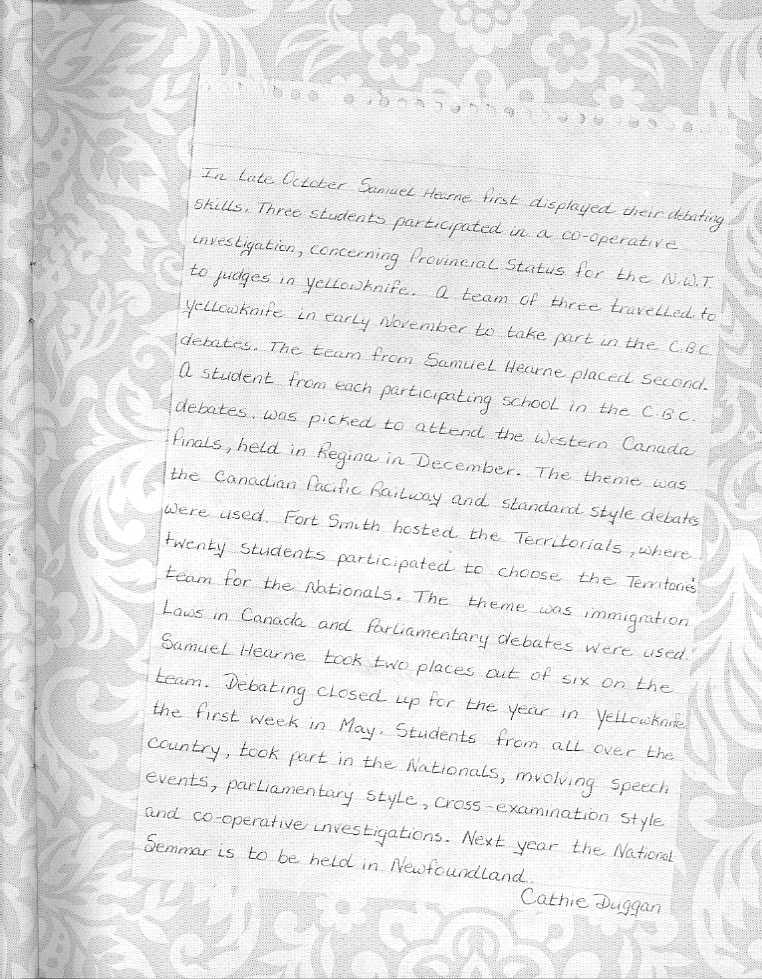 In Late October Samuel Hearne first displayed their debating
skills. Three students participated in a co-operative
investigation, concerning Provincial Status for the N.W.T.
to judges in Yellowknife. A team of three travelled to
Yellowknife in early November to take part in the C.B.C.
debates. The team from Samuel Hearne placed second.
A student from each participating school in the C.B.C.
debates. was picked to attend the Western Canada
finals, held in Regina in December. The theme was
the Canadian Pacific Railway and standard style debates
were used. Fort Smith hosted the Territorials, where
twenty students participated to choose the Territories
team for the Nationals. The theme was immigration
Laws in Canada and Parliamentary debates were used.
Samuel Hearne took two places out of six on the
team. Debating closed up for the year in Yellowknife
the first week in May. Students from all over the
country, took part in the Nationals, involving speech
events, parliamentary style, cross-examination style
and co-operative investigations. Next year the National
Seminar is to be held in Newfoundland.
Cathie Duggan